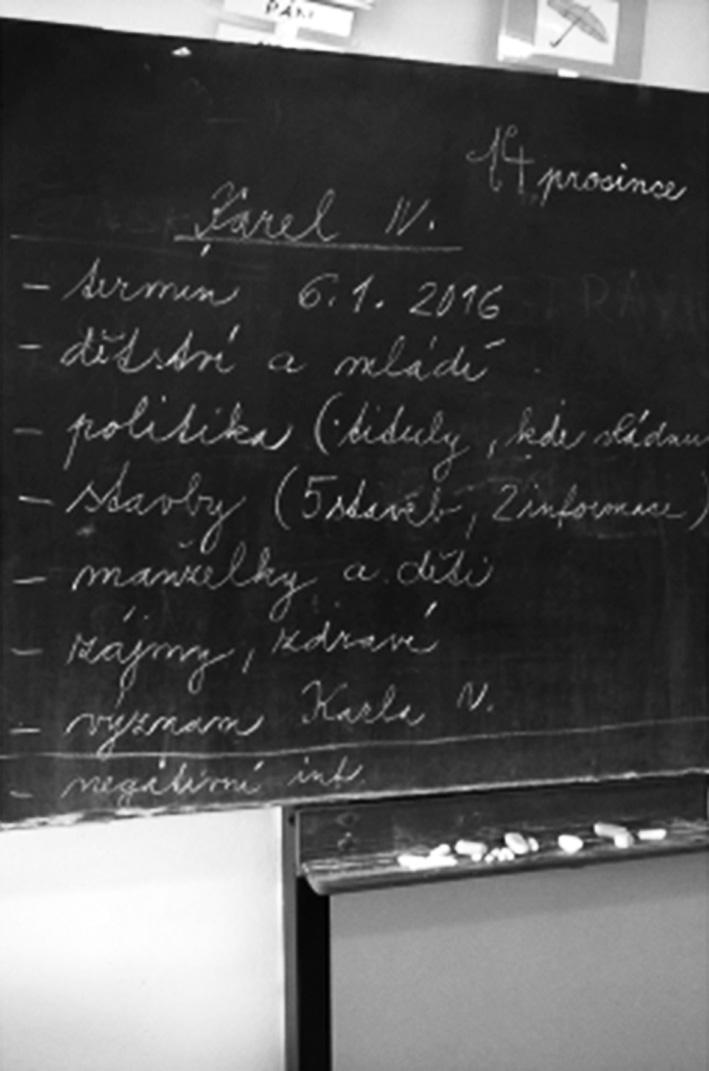 PÁN
14. prosince
Karel IV.
- termín 6.1. 2016
- dětství a mládí
- politika (tituly, kde vládnu
- stavby (5 staveb, 2 informace)
- manželky a děti
- zájmy, zdraví
- význam Karla IV.
- negativní inf.